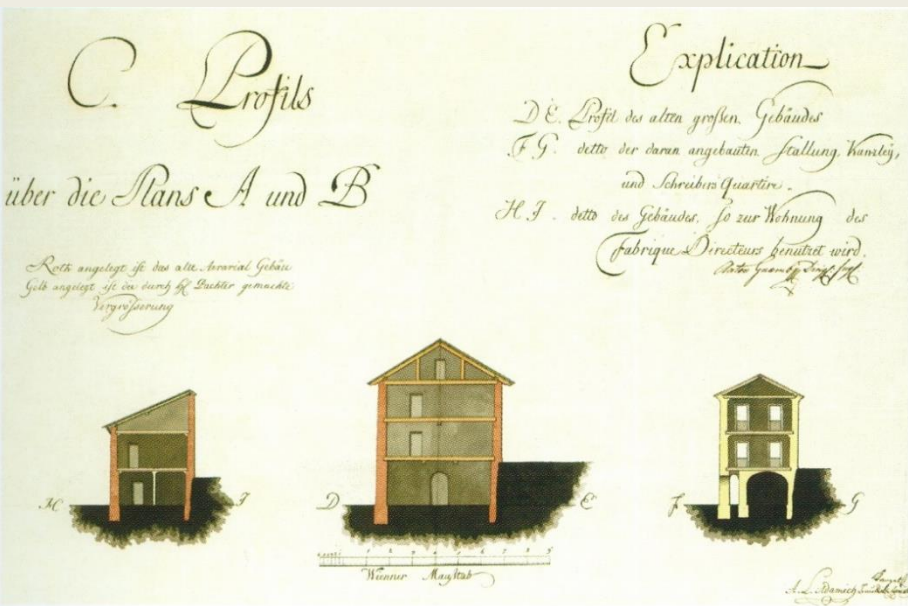 C. Profils
über die Plans A und B
Roth angelegt ist das alte Aerarial Gebäu
Gelb angelegt ist die durch Pachter gemachte
Vergrösserung
Explication
D E. Profil des alten großen Gebäudes
F G. detto der daran angebauten Stallung, Kanzley,
und Schreibers Quartire.
H J. detto des Gebäudes, so zur Wohnung des
Fabrique Directeurs benützet wird.
H J
D E
F G
1 2 3 4 5 6 7 8 9
Wienner Maaßstab
A. L. Adamich